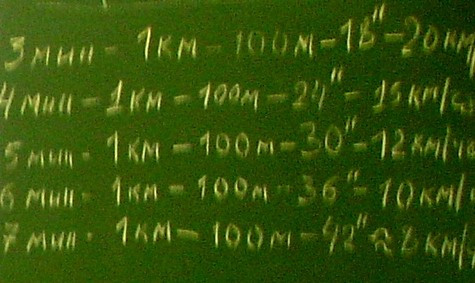 3 мин - 1 км - 100 м - 18" - 20 км/
4 мин - 1 км - 100м - 24" - 15 км/ч
5 мин - 1 км - 100 м - 30" - 12 км/ча
6 мин - 1 км - 100м - 36" - 10 км/
7 мин - 1 км - 100 м - 42" ≈ 8 км/ч